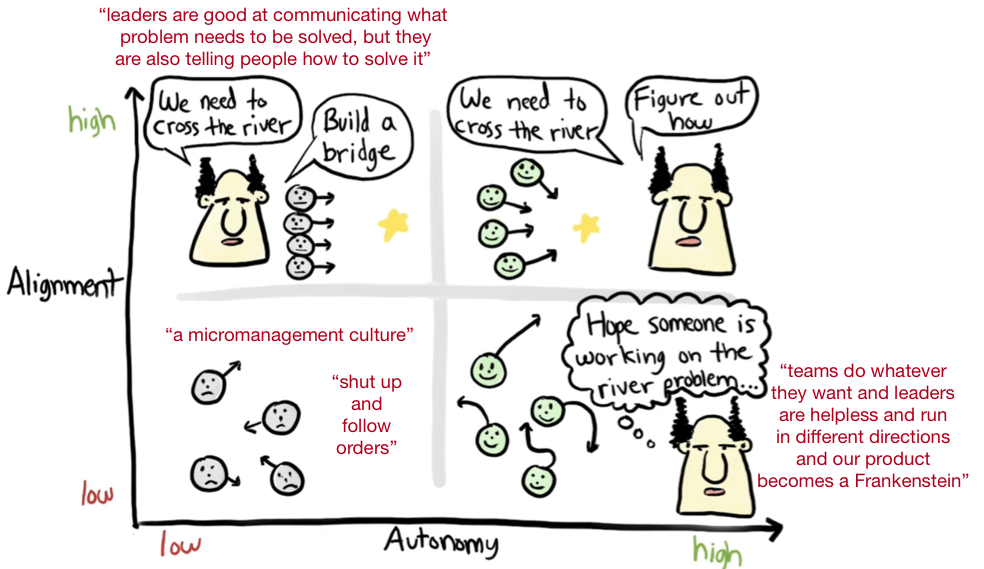 “leaders are good at communicating what
problem needs to be solved, but they
are also telling people how to solve it”
high
We need to
cross the river
Build a
bridge
We need to
cross the river
Figure out
how
Alignment
“a micromanagement culture”
“shut up
and
follow
orders”
Hope someone is
working on the
river problem...
“teams do whatever
they want and leaders
are helpless and run
in different directions
and our product
becomes a Frankenstein”
low
low
Autonomy
high